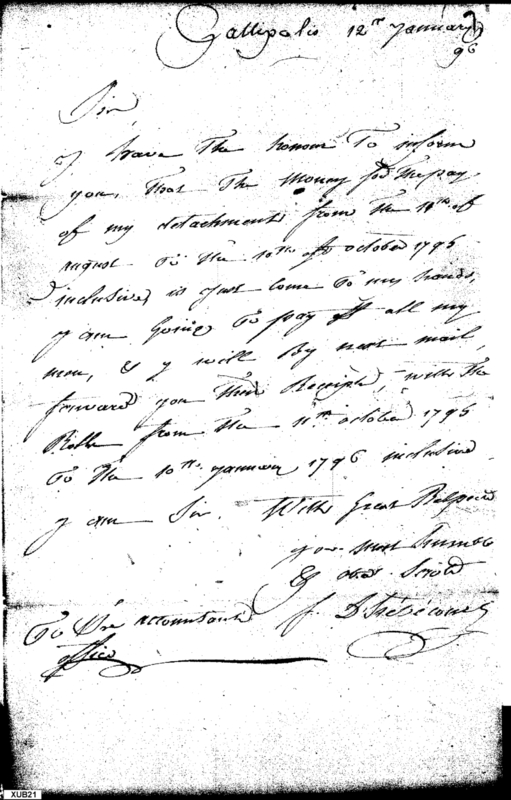 Gallipolis 12th January
96
Sir
I have The honour To inform
you, That The Money for The pay
of my detachment from The 11th of
august To The 10th of october 1795
inclusive, is Just come To my hands,
y am Going To pay all my
men, & y will By next mail,
forward you Their Receipts, with The
Rolls from The 11th october 1795
To The 10th January 1796 inclusive
y am Sir. With Great Respect
your most humble
& obdt Servt
f. D'hébécourt
To The accountant
office
XUB21